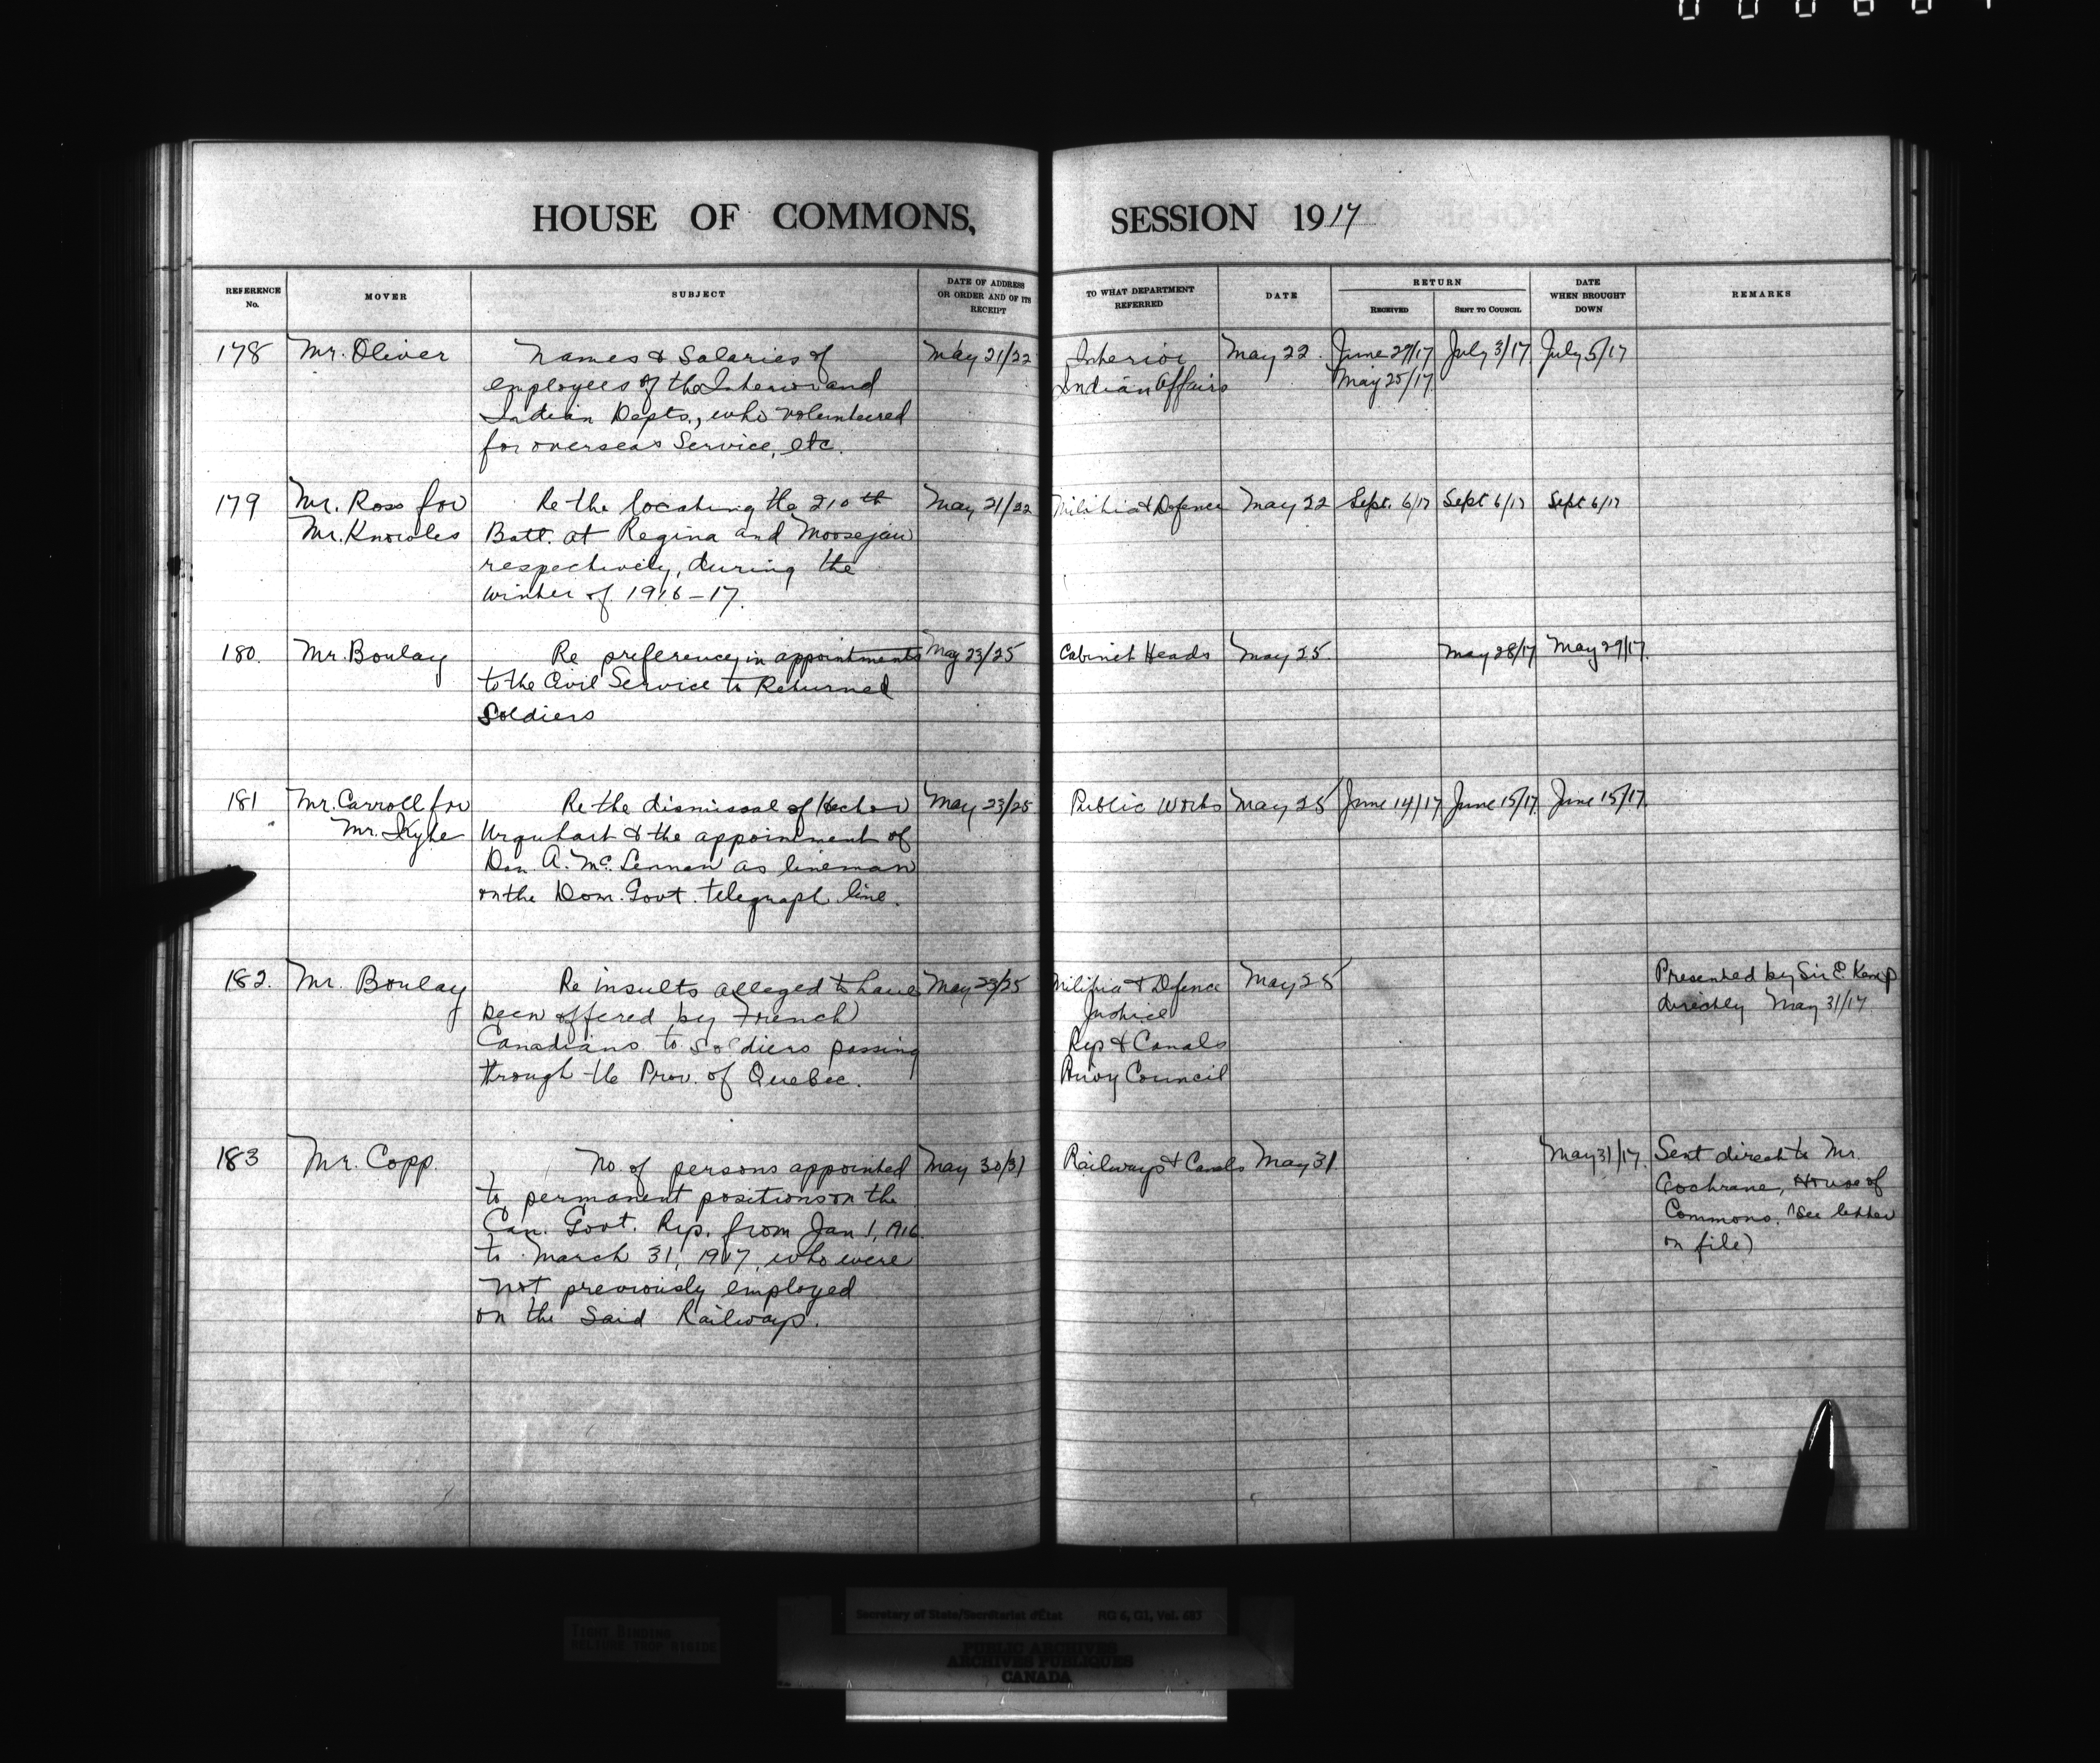 HOUSE OF COMMONS, SESSION 1917
REFERENCE No. MOVER SUBJECT DATE OF ADDRESS OR ORDER AND OF ITS RECEIPT TO WHAT DEPARTMENT REFERRED DATE RETURN RECEIVED SENT TO COUNCIL DATE WHEN BROUGHT DOWN REMARKS
178 Mr. Oliver Names & Salaries of May 21/22 Interior May 22 June 29/17 July 3/17 July 5/17
employees of the Interior and Indian Affairs May 25/17
Indian Depts., who volunteered
for overseas Service, etc.
179 Mr. Ross for Re the locating the 210th May 21/22 Militia & Defence May 22 Sept. 6/17 Sept 6/17 Sept 6/17
Mr. Knowles Batt. at Regina and Moosejaw
respectively, during the
winter of 1916-17.
180. Mr. Boulay Re preference, in appointments May 23/25 Cabinet Heads May 25 May 28/17 May 29/17.
to the Civil Service to Returned
Soldiers
181 Mr. Carroll for Re the dismissal of Hector May 23/25 Public Works May 25 June 14/17 June 15/17 June 15/17
Mr. Kyte Urquhart & the appointment of
Dan. A. Mc. Lennan as lineman
on the Dom. Govt. telegraph line.
182. Mr. Boulay Re insults alleged to have May 23/25 Militia & Defence May 25 Presented by Sir E. Kemp
been offered by French Justice directly May 31/17
Canadians to Soldiers passing Rys & Canals
through the Prov. of Quebec. Privy Council
183 Mr. Copp. No. of persons appointed May 30/31 Railways & Canals May 31 May 31/17. Sent direct to Mr.
to permanent positions on the Cochrane, House of
Can. Govt. Rys. from Jan 1, 1916 Commons. (See letter
to March 31, 1917, who were on file)
not previously employed
on the said Railways.
Secretary of State/Secrétariat d'État RG 6, G1, Vol. 683
TIGHT BINDING
RELIURE TROP RIGIDE
PUBLIC ARCHIVES
ARCHIVES PUBLIQUES
CANADA